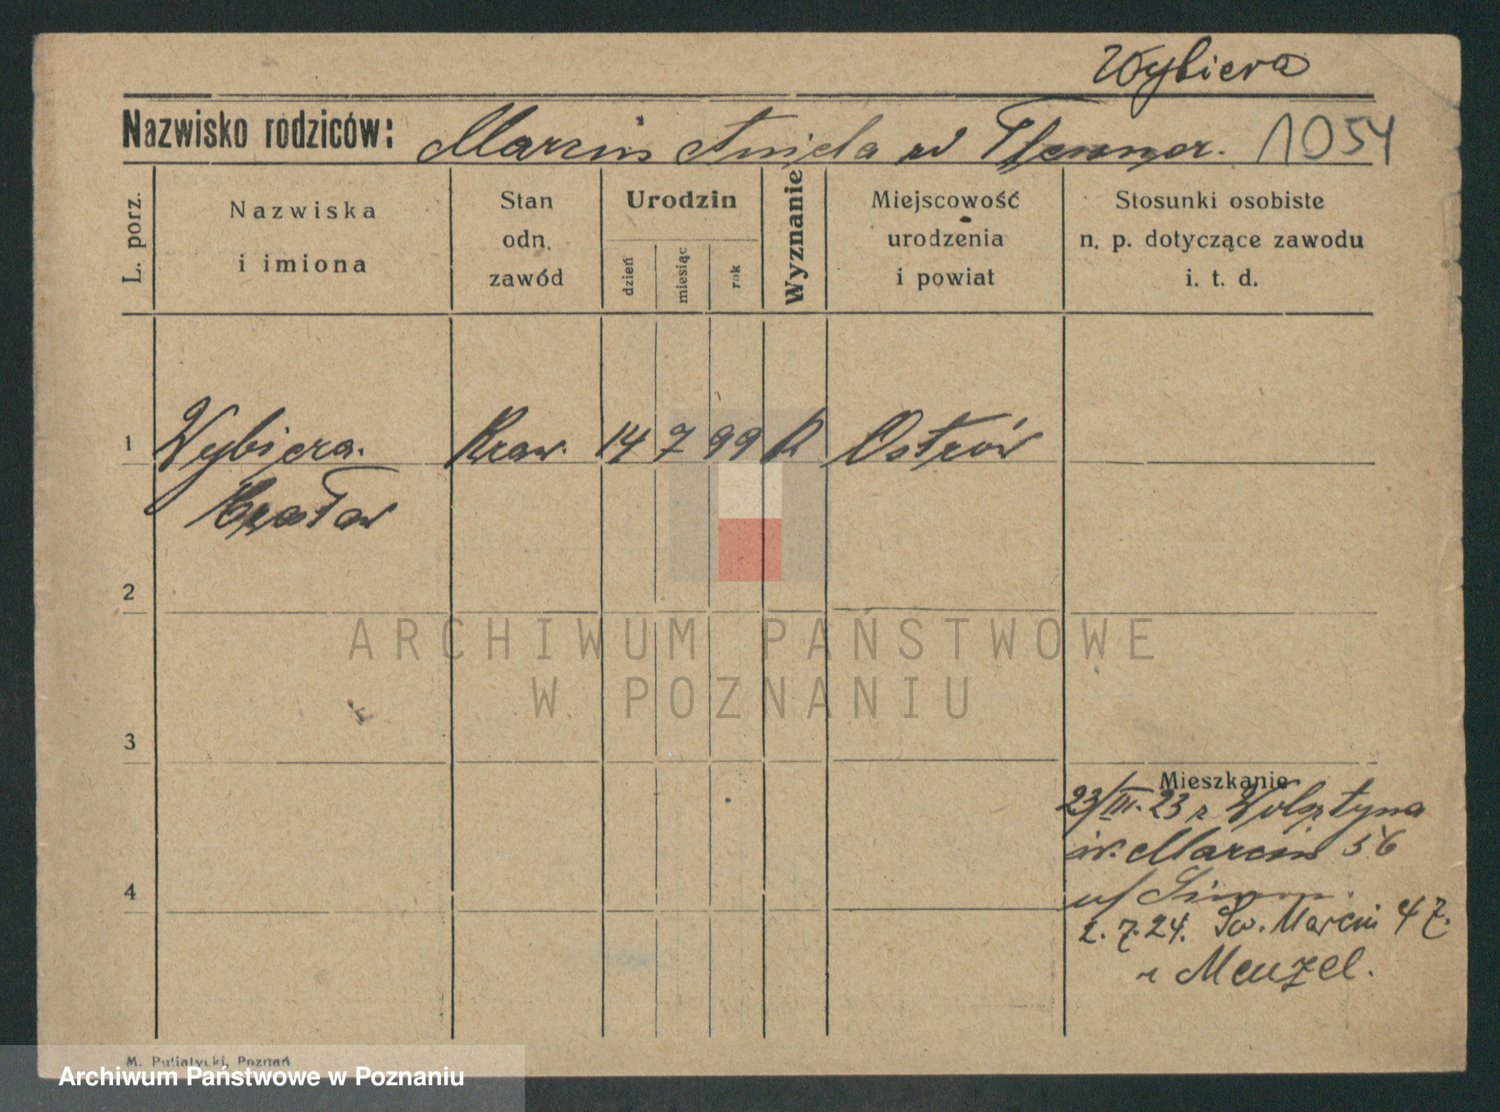 Wybiera
Nazwisko rodziców: Marcin Aniela 1054
L. porz.
Nazwiska
i imiona
Stan
odn.
zawód
Urodzin
dzień
miesiąc
rok
Wyznanie
Miejscowość
urodzenia
i powiat
Stosunki osobiste
n. p. dotyczące zawodu
i. t. d.
1 Wybiera. Kraw. 14 7 99 K Ostrów
2
ARCHIWUM PAŃSTWOWE
W POZNANIU
3
Mieszkanie
23/III. 23 z Wolsztyna
św. Marcin 56
4
2. 7. 24. Św. Marcin 47.
Menzel.
M. Putiatycki, Poznań
Archiwum Państwowe w Poznaniu